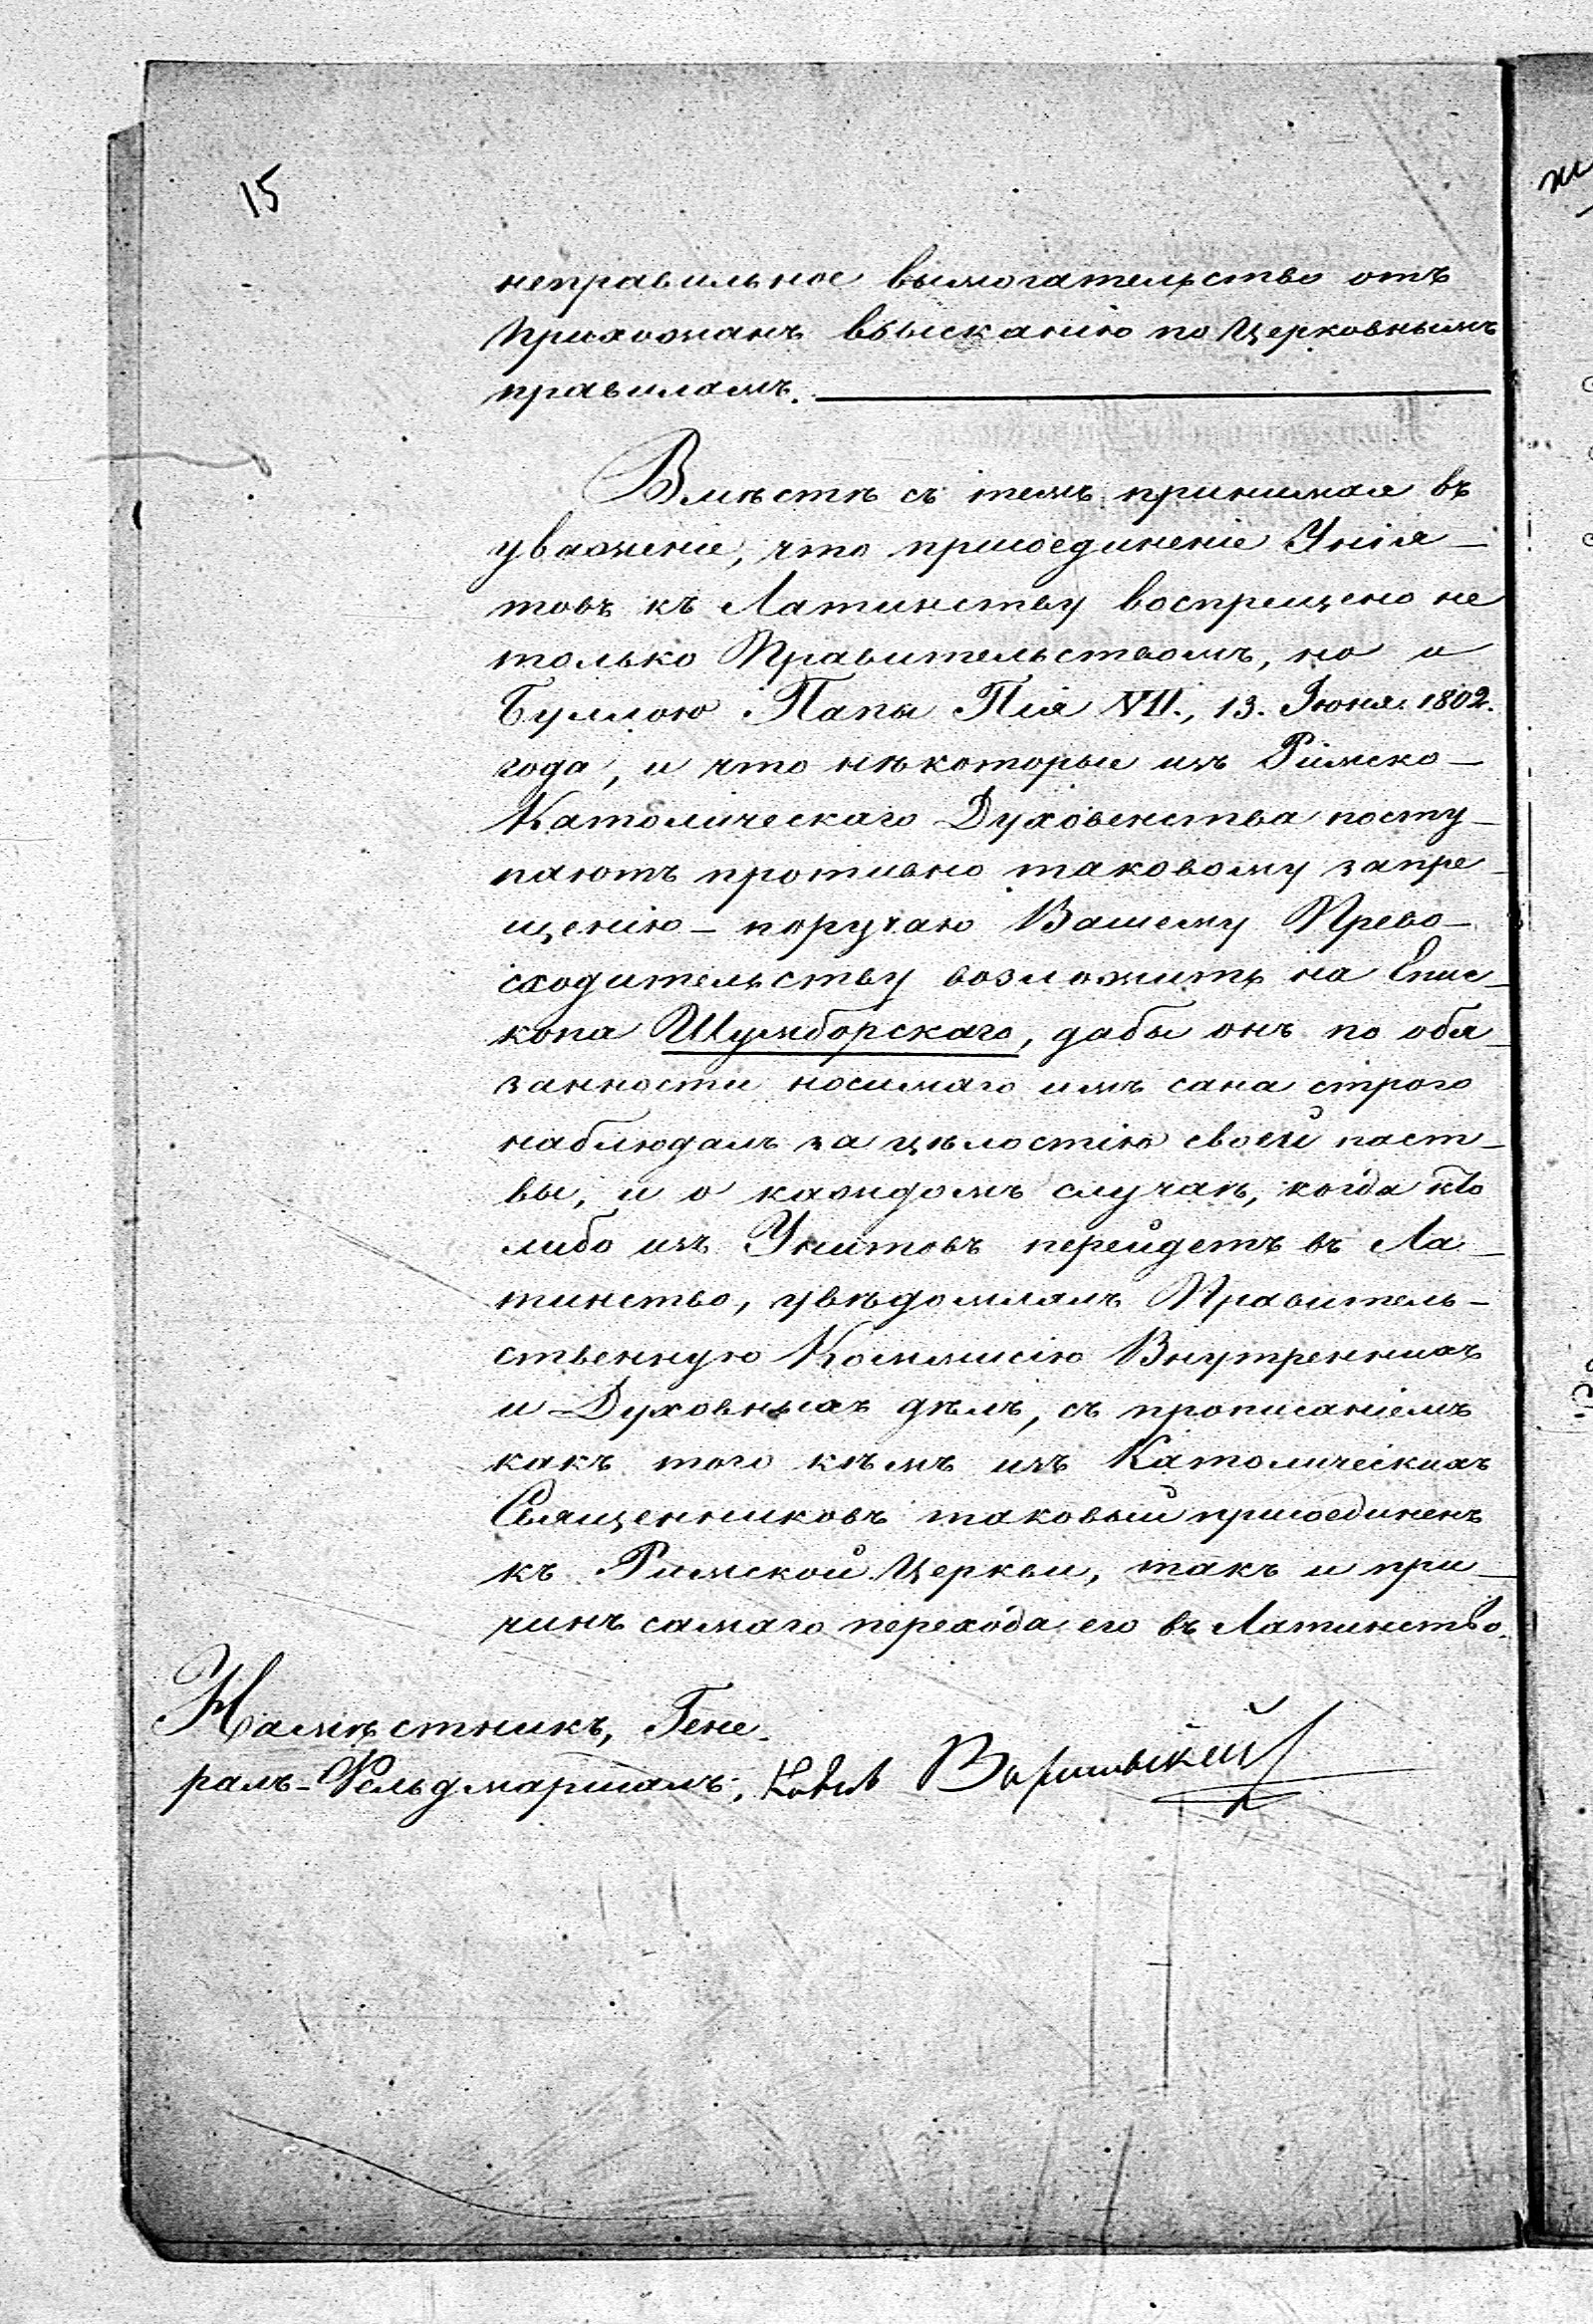 15
неправильное вымогательство отъ
прихожанъ взысканію по Церковнымъ
правиламъ.
Вмѣстѣ съ тѣмъ принимая въ
уваженіе, что присоединеніе Унія-
товъ къ Латинству воспрещено не
только Правительствомъ, но и
Буллою Папы Пія VII., 13. Іюня 1802.
года, и что нѣкоторые изъ Римско-
Католическаго Духовенства посту-
паютъ противно таковому запре-
щенію - поручаю Вашему Прево-
сходительству возложить на Епис-
копа Шумборскаго, дабы онъ по обя-
занности носимаго имъ сана строго
наблюдалъ за цѣлостію своей паст-
вы, и о каждомъ случаѣ, когда кто
либо изъ Унитовъ перейдетъ въ Ла-
тинство, увѣдомлялъ Правитель-
ственную Коммисію Внутреннихъ
и Духовныхъ дѣлъ, съ прописаніемъ
какъ того кѣмъ изъ Католическихъ
Священниковъ таковый присоединенъ
къ Римской Церкви, такъ и при-
чинъ самаго перехода его въ Латинство.
Намѣстникъ, Гене-
ралъ-Фельдмаршалъ, Князь Варшавскій